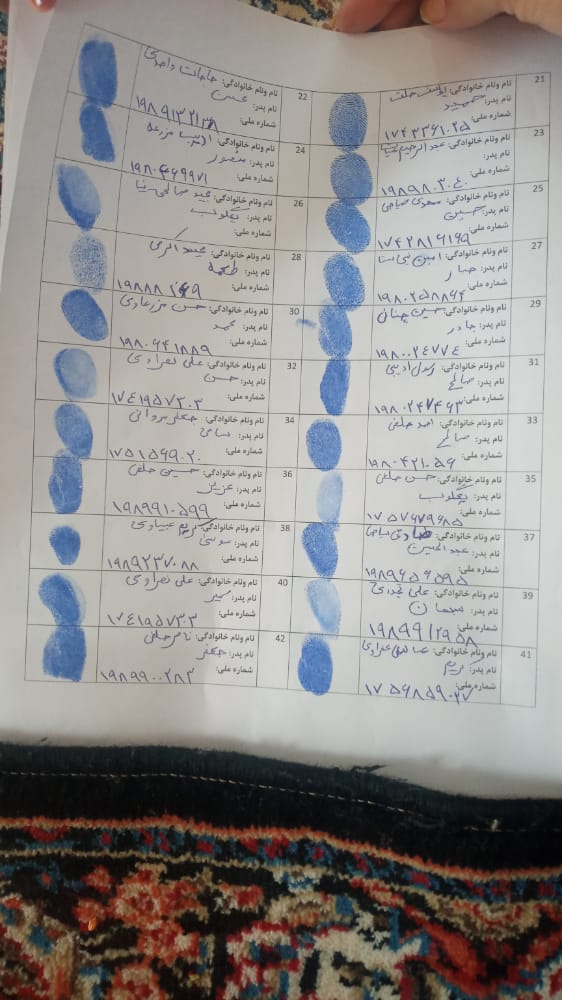 21
نام ونام خانوادگی: یوسف خلف
نام پدر: حمید
شماره ملی:
22
نام ونام خانوادگی: حاجات واحدی
نام پدر:
شماره ملی:
23
نام ونام خانوادگی: عبدالرحیم
نام پدر:
شماره ملی: ۱۹۸۹۸۰۳۰۴۰
24
نام ونام خانوادگی:
نام پدر: منصور
شماره ملی: ۱۹۸۰۴۶۹۹۷۱
25
نام ونام خانوادگی:
نام پدر: حسین
شماره ملی: ۱۷۴۲۸۱۶۱۶۹
26
نام ونام خانوادگی: مجید صالحی نیا
نام پدر: یعقوب
شماره ملی:
27
نام ونام خانوادگی: امین
نام پدر: جبار
شماره ملی: ۱۹۸۰۲۵۸۸۶۴
28
نام ونام خانوادگی: مجید اکبری
نام پدر: طعمه
شماره ملی:
29
نام ونام خانوادگی: حسین چنانی
نام پدر: جادر
شماره ملی: ۱۹۸۰۰۲۴۷۷۴
30
نام ونام خانوادگی: حسن مزرعاوی
نام پدر: حمید
شماره ملی: ۱۹۸۰۶۴۱۸۸۹
31
نام ونام خانوادگی: رسول ادیبی
نام پدر: صالح
شماره ملی: ۱۹۸۰۲۴۷۴۶۳
32
نام ونام خانوادگی: علی نصراوی
نام پدر: حسن
شماره ملی: ۱۷۴۱۹۵۷۳۰۳
33
نام ونام خانوادگی: احمد خلفی
نام پدر: صالح
شماره ملی: ۱۹۸۰۴۲۱۰۵۶
34
نام ونام خانوادگی: جعفر مروانی
نام پدر: سامی
شماره ملی: ۱۷۵۱۵۶۹۰۲۰
35
نام ونام خانوادگی: حسن خلفی
نام پدر: یعقوب
شماره ملی: ۱۷۵۷۶۷۹۶۸۵
36
نام ونام خانوادگی: حسین خلفی
نام پدر: عزیز
شماره ملی: ۱۹۸۹۹۱۰۵۹۹
37
نام ونام خانوادگی: صادق
نام پدر: عبدالحسین
شماره ملی: ۱۹۸۹۶۵۶۵۹۵
38
نام ونام خانوادگی: کریم عبیاوی
نام پدر: موسی
شماره ملی: ۱۹۸۹۲۳۷۰۸۸
39
نام ونام خانوادگی: علی مجدی
نام پدر: سبحان
شماره ملی: ۱۹۸۹۹۱۲۹۵۸
40
نام ونام خانوادگی: علی نصراوی
نام پدر: کبیر
شماره ملی: ۱۷۴۱۹۵۷۳۳۳
41
نام ونام خانوادگی: عباس
نام پدر: کریم
شماره ملی: ۱۷۵۶۸۵۹۰۲۷
42
نام ونام خانوادگی: ناصر خلفی
نام پدر: جعفر
شماره ملی: ۱۹۸۹۹۰۰۲۸۳